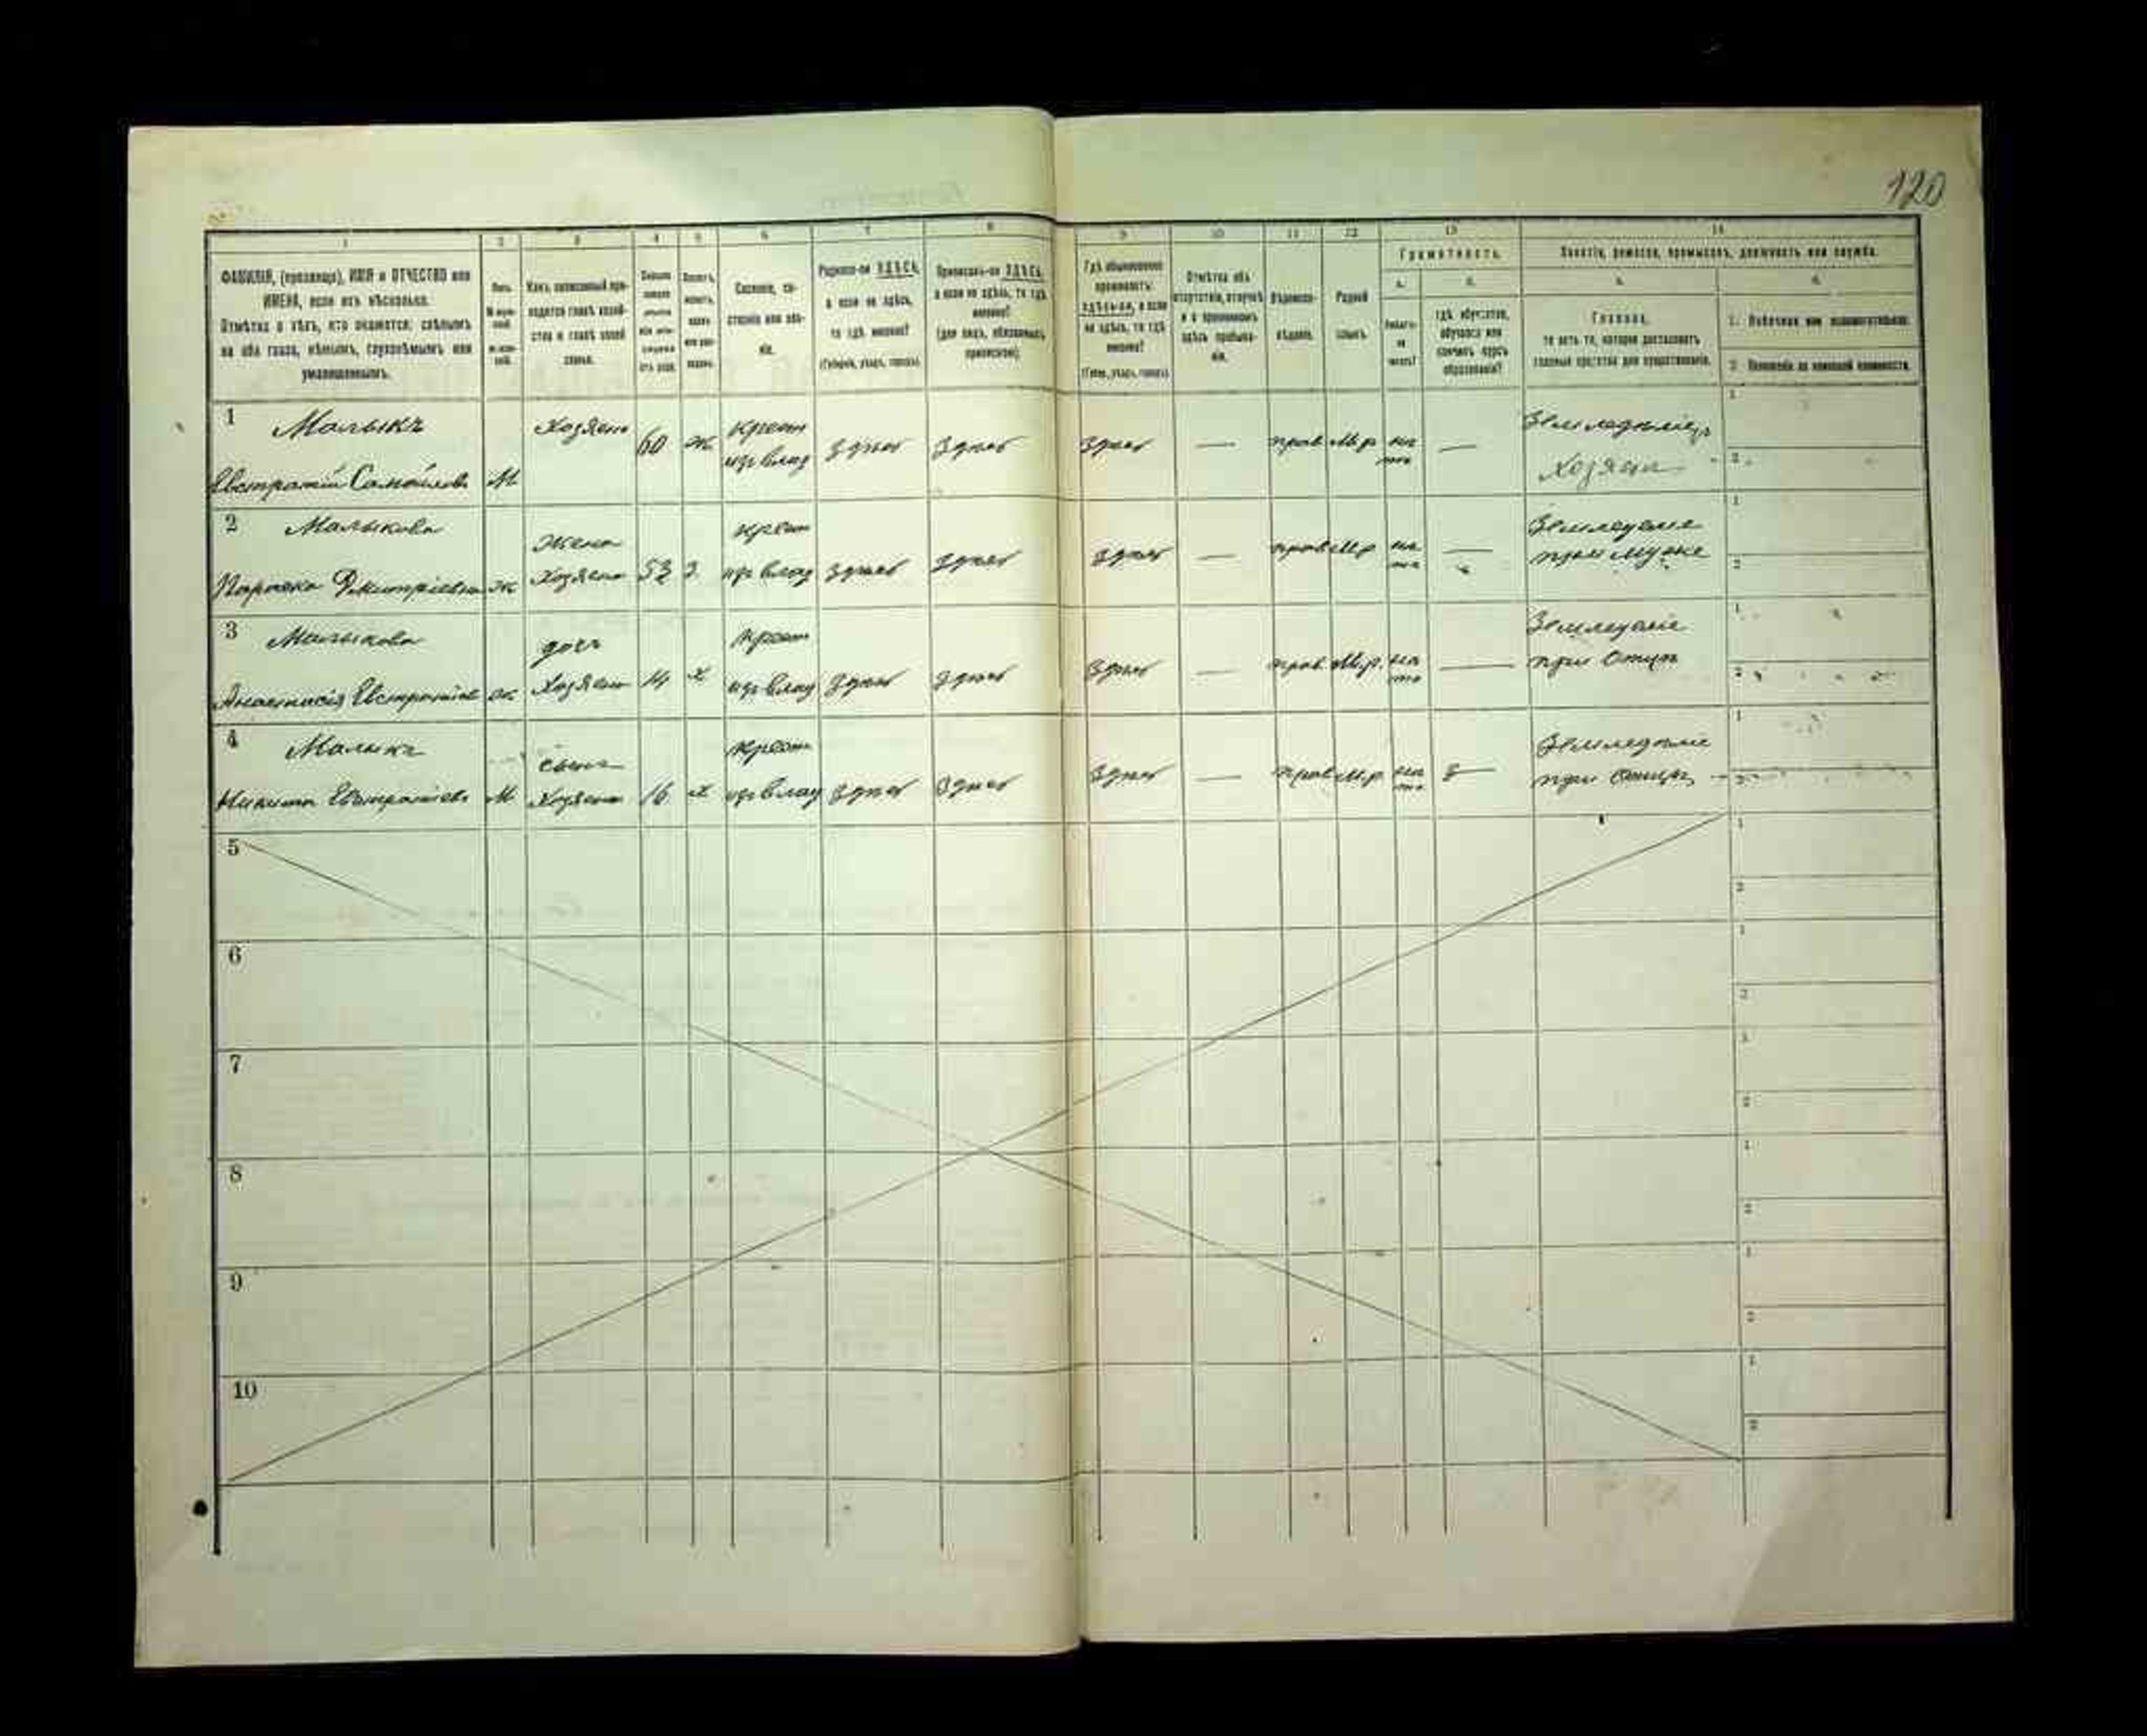 120
1 2 3 4 5 6 7 8 9 10 11 12 13 14
ФАМИЛІЯ, (прозвище), ИМЯ и ОТЧЕСТВО или
ИМЕНА, если ихъ нѣсколько.
Отмѣтка о тѣхъ, кто окажется: слѣпымъ
на оба глаза, нѣмымъ, глухонѣмымъ или
умалишеннымъ.
Полъ.
Какъ записанный при-
ходится главѣ хозяй-
ства и главѣ своей
семьи.
Сословіе, со-
стояніе или зва-
ніе.
Родился-ли ЗДѢСЬ,
а если не здѣсь,
то гдѣ именно?
(Губернія, уѣздъ, городъ).
Приписанъ-ли ЗДѢСЬ,
а если не здѣсь, то гдѣ
именно?
(для лицъ, обязанныхъ
припискою).
Гдѣ обыкновенно
проживаетъ:
здѣсь-ли, а если
не здѣсь, то гдѣ
именно?
(Губер., уѣздъ, городъ).
Отмѣтка объ
отсутствіи, отлучкѣ
и о временномъ
здѣсь пребыва-
ніи.
Вѣроиспо-
вѣданіе.
Родной
языкъ.
Грамотность.
а.
б.
Умѣетъ-
ли
читать?
гдѣ обучается,
обучался или
кончилъ курсъ
образованія?
Занятіе, ремесло, промыселъ, должность или служба.
а.
б.
Главное,
то есть то, которое доставляетъ
главныя средства для существованія.
1. Побочное или вспомогательное.
2. Положеніе по воинской повинности.
1 Малыкъ
Евстратій Самойловъ М Хозяинъ 60 ж крест
из влад здѣсь здѣсь здѣсь — прав М.р. нѣ
тъ — Земледѣліе
Хозяин 1
2
2 Малыкова
Параска Дмитріевна ж Жена
Хозяина 53 з. крест
из влад здѣсь здѣсь здѣсь — прав М.р нѣ
тъ — Земледѣліе
при муже 1
2
3 Малыкова
Анастасія Евстратіев ж дочь
Хозяин 14 х крест
из влад здѣсь здѣсь здѣсь — прав М.р. нѣ
тъ — Земледѣліе
при Отцѣ 1
2
4 Малыкъ
Никита Евстратіевъ М сынъ
Хозяина 16 х крест
из влад здѣсь здѣсь здѣсь — прав М.р. нѣ
тъ — Земледѣліе
при Отцѣ 1
2
5 1
2
6 1
2
7 1
2
8 1
2
9 1
2
10 1
2